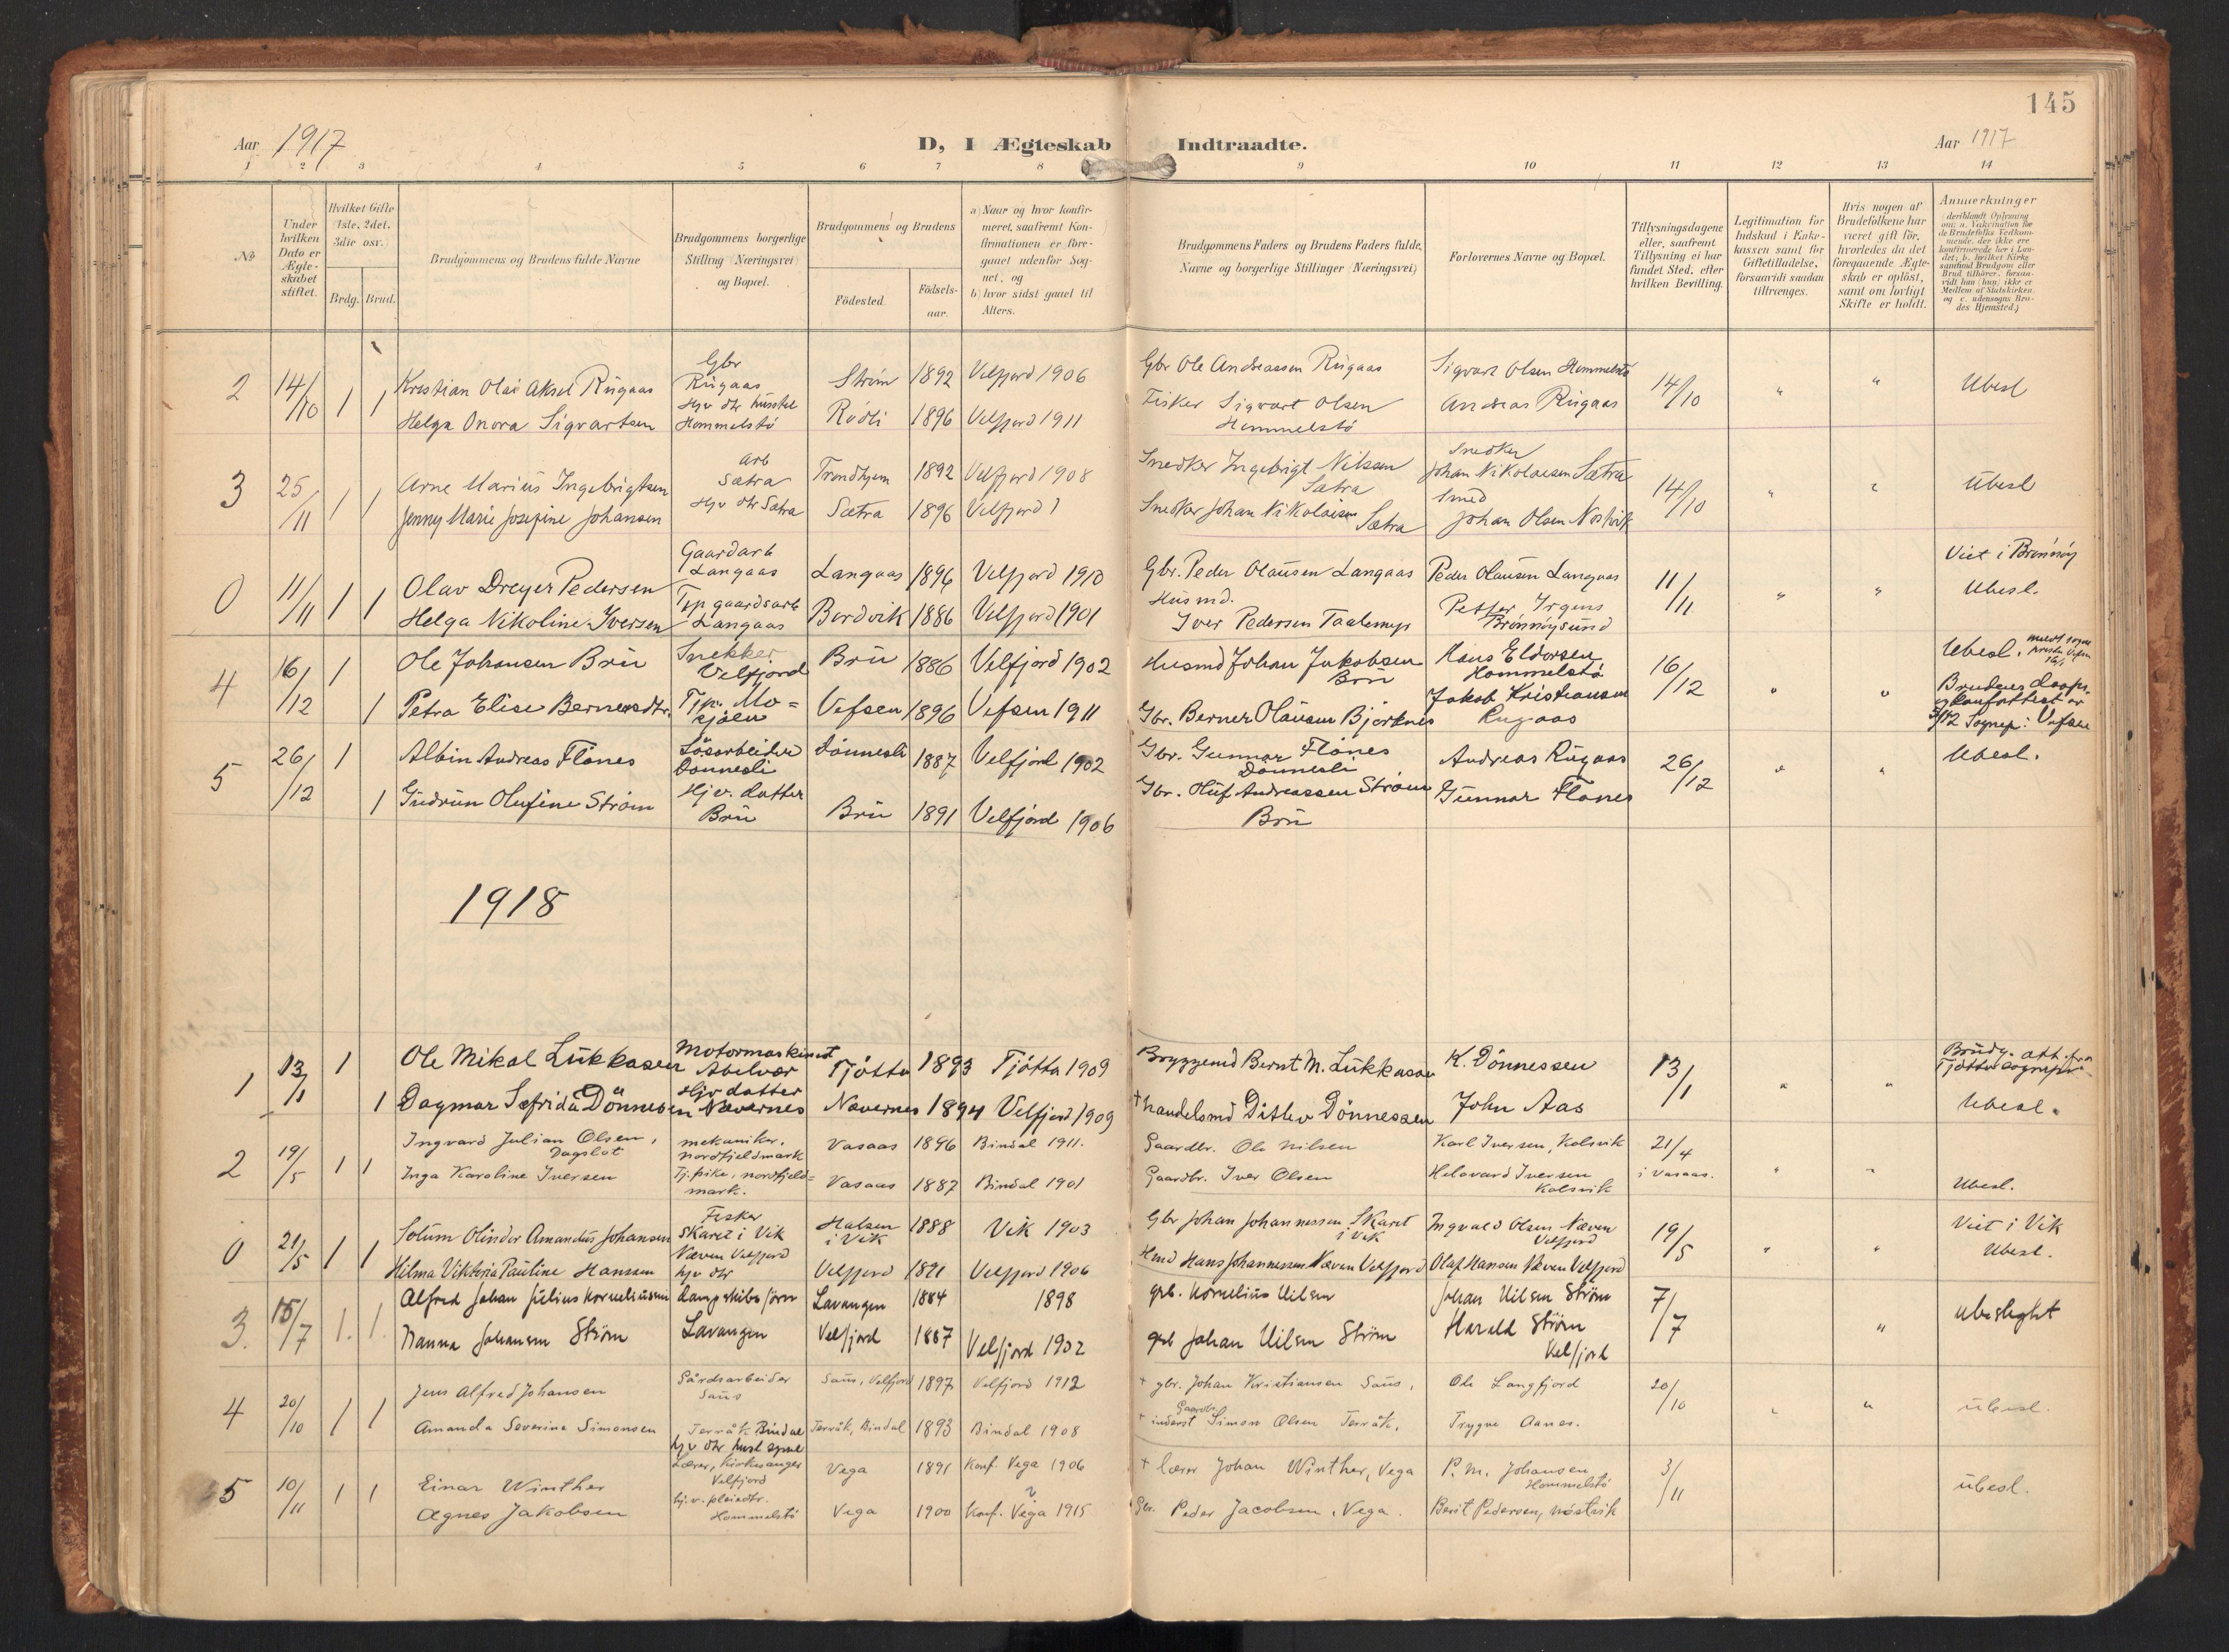 145
Aar 1917
D, I Ægteskab Indtraadte.
Aar 1917
1 2 3 4 5 6 7 8 9 10 11 12 13 14
No
Under hvilken Dato er Ægteskabet stiftet.
Hvilket Gifte (1ste, 2det, 3die osv.)
Brdg. Brud.
Brudgommens og Brudens fulde Navne
Brudgommens borgerlige Stilling (Næringsvei) og Bopæl.
Brudgommens og Brudens
Födested. Födselsaar.
a) Naar og hvor konfirmeret, saafremt Konfirmationen er foregaaet udenfor Sognet, og
b) hvor sidst gaaet til Alters.
Brudgommens Faders og Brudens Faders fulde Navne og borgerlige Stillinger (Næringsvei)
Forlovernes Navne og Bopæl.
Tillysningsdagene eller, saafremt Tillysning ei har fundet Sted, efter hvilken Bevilling.
Legitimation for Indskud i Enkekassen samt for Giftetilladelse, forsaavidt saadan tiltrænges.
Hvis nogen af Brudefolkene har været gift för, hvorledes da det foregaaende Ægteskab er oplöst, samt om lovligt Skifte er holdt.
Anmærkninger
2 14/10 1 1
Kristian Olai Aksel Rugaas
Gbr Rugaas
Strøm 1892 Velfjord 1906
Gbr Ole Andreassen Rugaas
Sigvart Olsen Hommelstø
14/10 " " Ubesl
Helga Onora Sigvartsen
Hjv dtr Hommelstø
Rødli 1896 Velfjord 1911
Fisker Sigvart Olsen Hommelstø
Andreas Rugaas
3 25/11 1 1
Arne Marius Ingebrigtsen
Arb Sætra
Trondhjem 1892 Velfjord 1908
Snedker Ingebrigt Nilssen Sætra
Snedker Johan Nikolaisen Sætra
14/10 " " Ubesl
Jenny Marie Josefine Johansen
Hjv dtr Sætra
Sætra 1896 Velfjord ?
Snedker Johan Nikolaisen Sætra
Smed Johan Olsen Nøstvik
0 11/11 1 1
Olav Dreyer Pedersen
Gaardarb Langaas
Langaas 1896 Velfjord 1910
Gbr. Peder Olausen Langaas
Peder Olausen Langaas
11/11 " "
Viet i Brønnøy
Ubesl.
Helga Nikoline Iversen
gaardsarb Langaas
Bordvik 1886 Velfjord 1901
Husmd. Iver Pedersen
Petter Irgens Brønnøysund
4 16/12 1
Ole Johansen Bru
Snekker Velfjord
Bru 1886 Velfjord 1902
Husmd Johan Jakobsen Bru
Hans Eldorsen Hommelstø
16/12 " "
Ubesl.
1 Petra Elise Bernersdtr.
Tjp. Mosjøen
Vefsen 1896 Vefsen 1911
Gbr. Berner Olausen Bjørknes
Jakob Kristiansen Rugaas
Brudens daaps- og konfattest av 3/12 Sognep. i Vefsen
5 26/12 1
Albin Andreas Flønes
Løsarbeider Dønnesli
Dønnesli 1887 Velfjord 1902
Gbr. Gunnar Flønes Dønnesli
Andreas Rugaas
26/12 " " Ubesl.
1 Gudrun Olufine Strøm
Hjv. datter Bru
Bru 1891 Velfjord 1906
Gbr. Oluf Andreassen Strøm Bru
Gunnar Flønes
1918
1 13/1 1
Ole Mikal Lukkasen
Motormaskinist Abelvær
Tjøtta 1893 Tjøtta 1909
Bryggemd Bernt M. Lukkasen
K. Dønnessen
13/1 " "
Brudg. att. fra Tjøtta sognepr.
1 Dagmar Sefrida Dönnesen
Hjv datter Nævernes
Nævernes 1894 Velfjord 1909
† handelsmd Ditlev Dönnessen
John Aas
Ubesl.
2 19/5 1 1
Ingvard Julian Olsen, Dagslot
mekaniker. nordfjeldmark
Vasaas 1896 Bindal 1911.
Gaardbr. Ole Nilsen
Karl Iversen, Kolsvik
21/4 i Vasaas. " "
Inga Karoline Iversen
Tj.pike, nordfjeldmark.
Vasaas 1887 Bindal 1901
Gaardbr. Iver Olsen
Helavard Iversen Kolsvik
Ubesl.
0 21/5 1 1
Solum Olindor Amandus Johansen
Fisker Skaret i Vik
Halsen i Vik 1888 Vik 1903
Gbr Johan Johannessen Skaret i Vik
Ingvald Olsen Næven Velfjord
19/5 " "
Viet i Vik
Ubesl.
Hilma Viktoria Pauline Hanssen
Næven Velfjord hjv dtr
Velfjord 1891 Velfjord 1906
Hmd Hans Johannessen Næven Velfjord
Olaf Hansen Næven Velfjord
3. 15/7 1. 1.
Alfred Johan Julius Korneliussen
Lavangen 1884 1898
grb. Kornelius Nilsen
Johan Nilsen Strøm
7/7 " ubeslegtet
Nanna Johansen Strøm
Lavangen
Velfjord 1887 Velfjord 1902
grb Johan Nilsen Strøm
Harald Strøm Velfjord
4 20/10 1 1
Jens Alfred Johansen
Gårdsarbeider Saus
Saus, Velfjord 1897 Velfjord 1912
† gbr. Johan Kristiansen Saus,
Ole Langfjord
20/10 " " übesl.
Amanda Severine Simonsen
Terråk Bindal hjv dtr
Terråk, Bindal 1893 Bindal 1908
† inderst Gaardbr. Simon Olsen Terråk,
Trygve Aanes.
5 10/11 1 1
Einar Winther
Lærer, kirkesanger Velfjord
Vega 1891 Konf. Vega 1906
† lærer Johan Winther, Vega
P. M. Johansen Hommelstø
3/11 übesl.
Agnes Jakobsen
hj. v. pleiedtr. Hommelstö
Vega 1900 Konf. Vega 1915
Gbr. Peder Jacobsen, Vega.
Berit Pedersen, Nøstvik